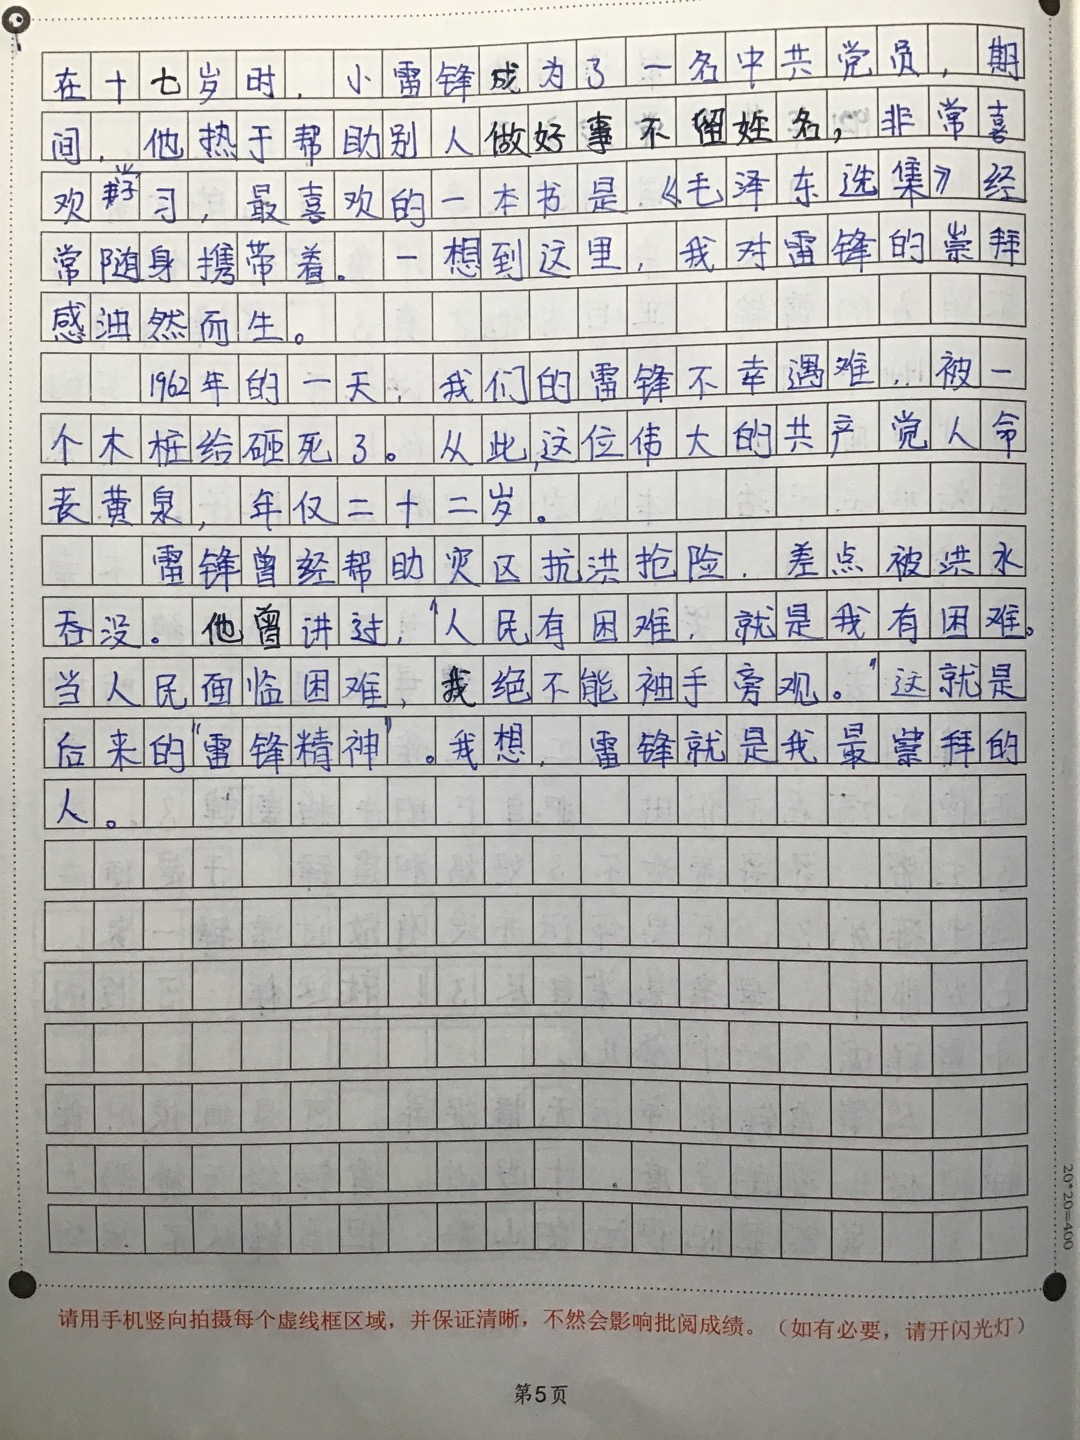 在十七岁时，小雷锋成为了一名中共党员，期
间，他热于帮助别人做好事不留姓名，非常喜
欢学习，最喜欢的一本书是《毛泽东选集》经
常随身携带着。一想到这里，我对雷锋的崇拜
感油然而生。
1962年的一天，我们的雷锋不幸遇难，被一
个木桩给砸死了。从此，这位伟大的共产党人命
丧黄泉，年仅二十二岁。
雷锋曾经帮助灾区抗洪抢险，差点被洪水
吞没。他曾讲过，“人民有困难，就是我有困难。
当人民面临困难，我绝不能袖手旁观。”这就是
后来的“雷锋精神”。我想，雷锋就是我最崇拜的
人。
20*20=400
请用手机竖向拍摄每个虚线框区域，并保证清晰，不然会影响批阅成绩。（如有必要，请开闪光灯）
第5页